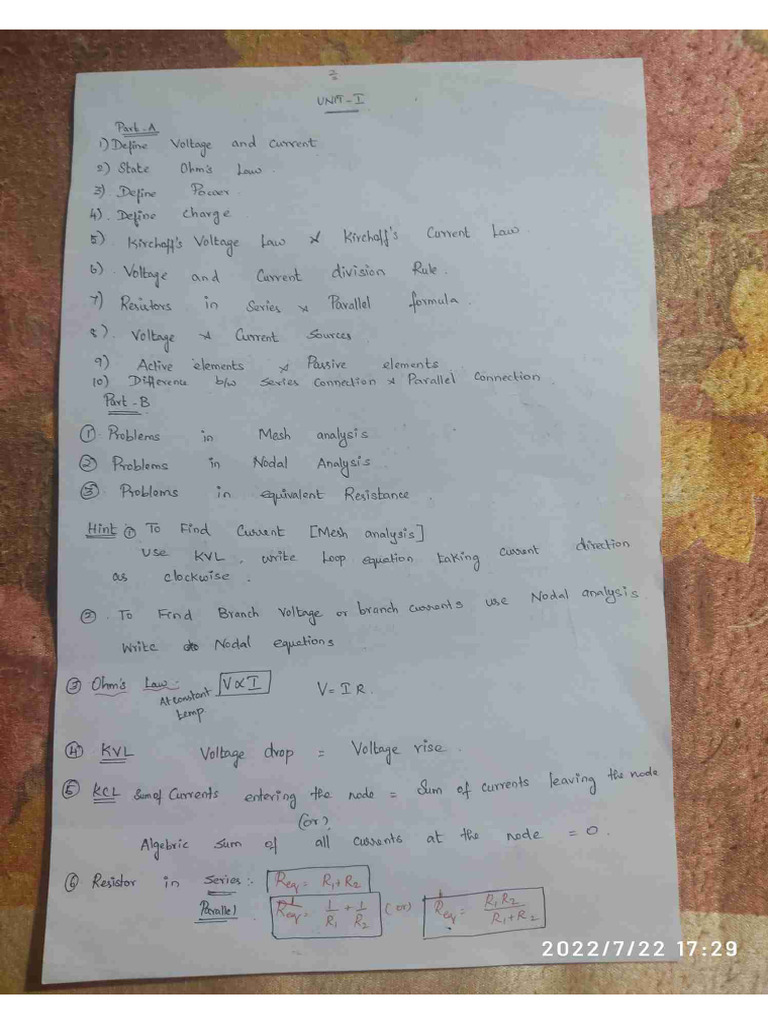 UNIT-I
Part-A
1) Define Voltage and Current
2) State Ohm's Law.
3) Define Power.
4). Define Charge
5) Kirchoff's Voltage Law & Kirchoff's Current Law.
6) Voltage and Current division Rule.
7) Resistors in Series & Parallel formula.
8). Voltage & Current Sources
9) Active elements & Passive elements
10) Difference b/w Series Connection & Parallel Connection.
Part-B
① Problems in Mesh analysis
② Problems in Nodal Analysis.
③ Problems in equivalent Resistance.
Hint ① To Find Current [Mesh analysis]
Use KVL, write Loop equation taking current direction
as clockwise.
②. To Find Branch Voltage or branch currents use Nodal analysis.
Write Nodal equations.
③ Ohm's Law: At constant temp. V∝I V = I R.
④ KVL Voltage drop = Voltage rise.
⑤ KCL Sum of Currents entering the node = Sum of currents leaving the node
(or)
Algebric sum of all currents at the node = 0.
⑥ Resistor in Series:- Req = R1+R2
Parallel 1/Req = 1/R1 + 1/R2 (or) Req = R1R2/R1+R2
2022/7/22 17:29